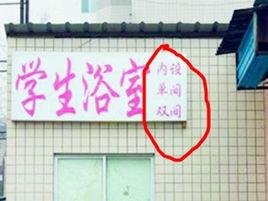 学生浴室
内设
单间
双间